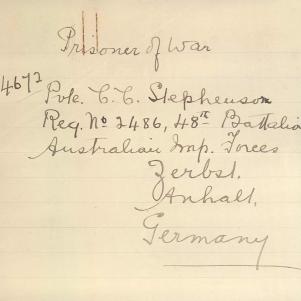 Prisoner of War
4672
Pvte. C. C. Stephenson
Reg. No 2486, 48th Battalion
Australian Imp. Forces
Zerbst.
Anhalt.
Germany